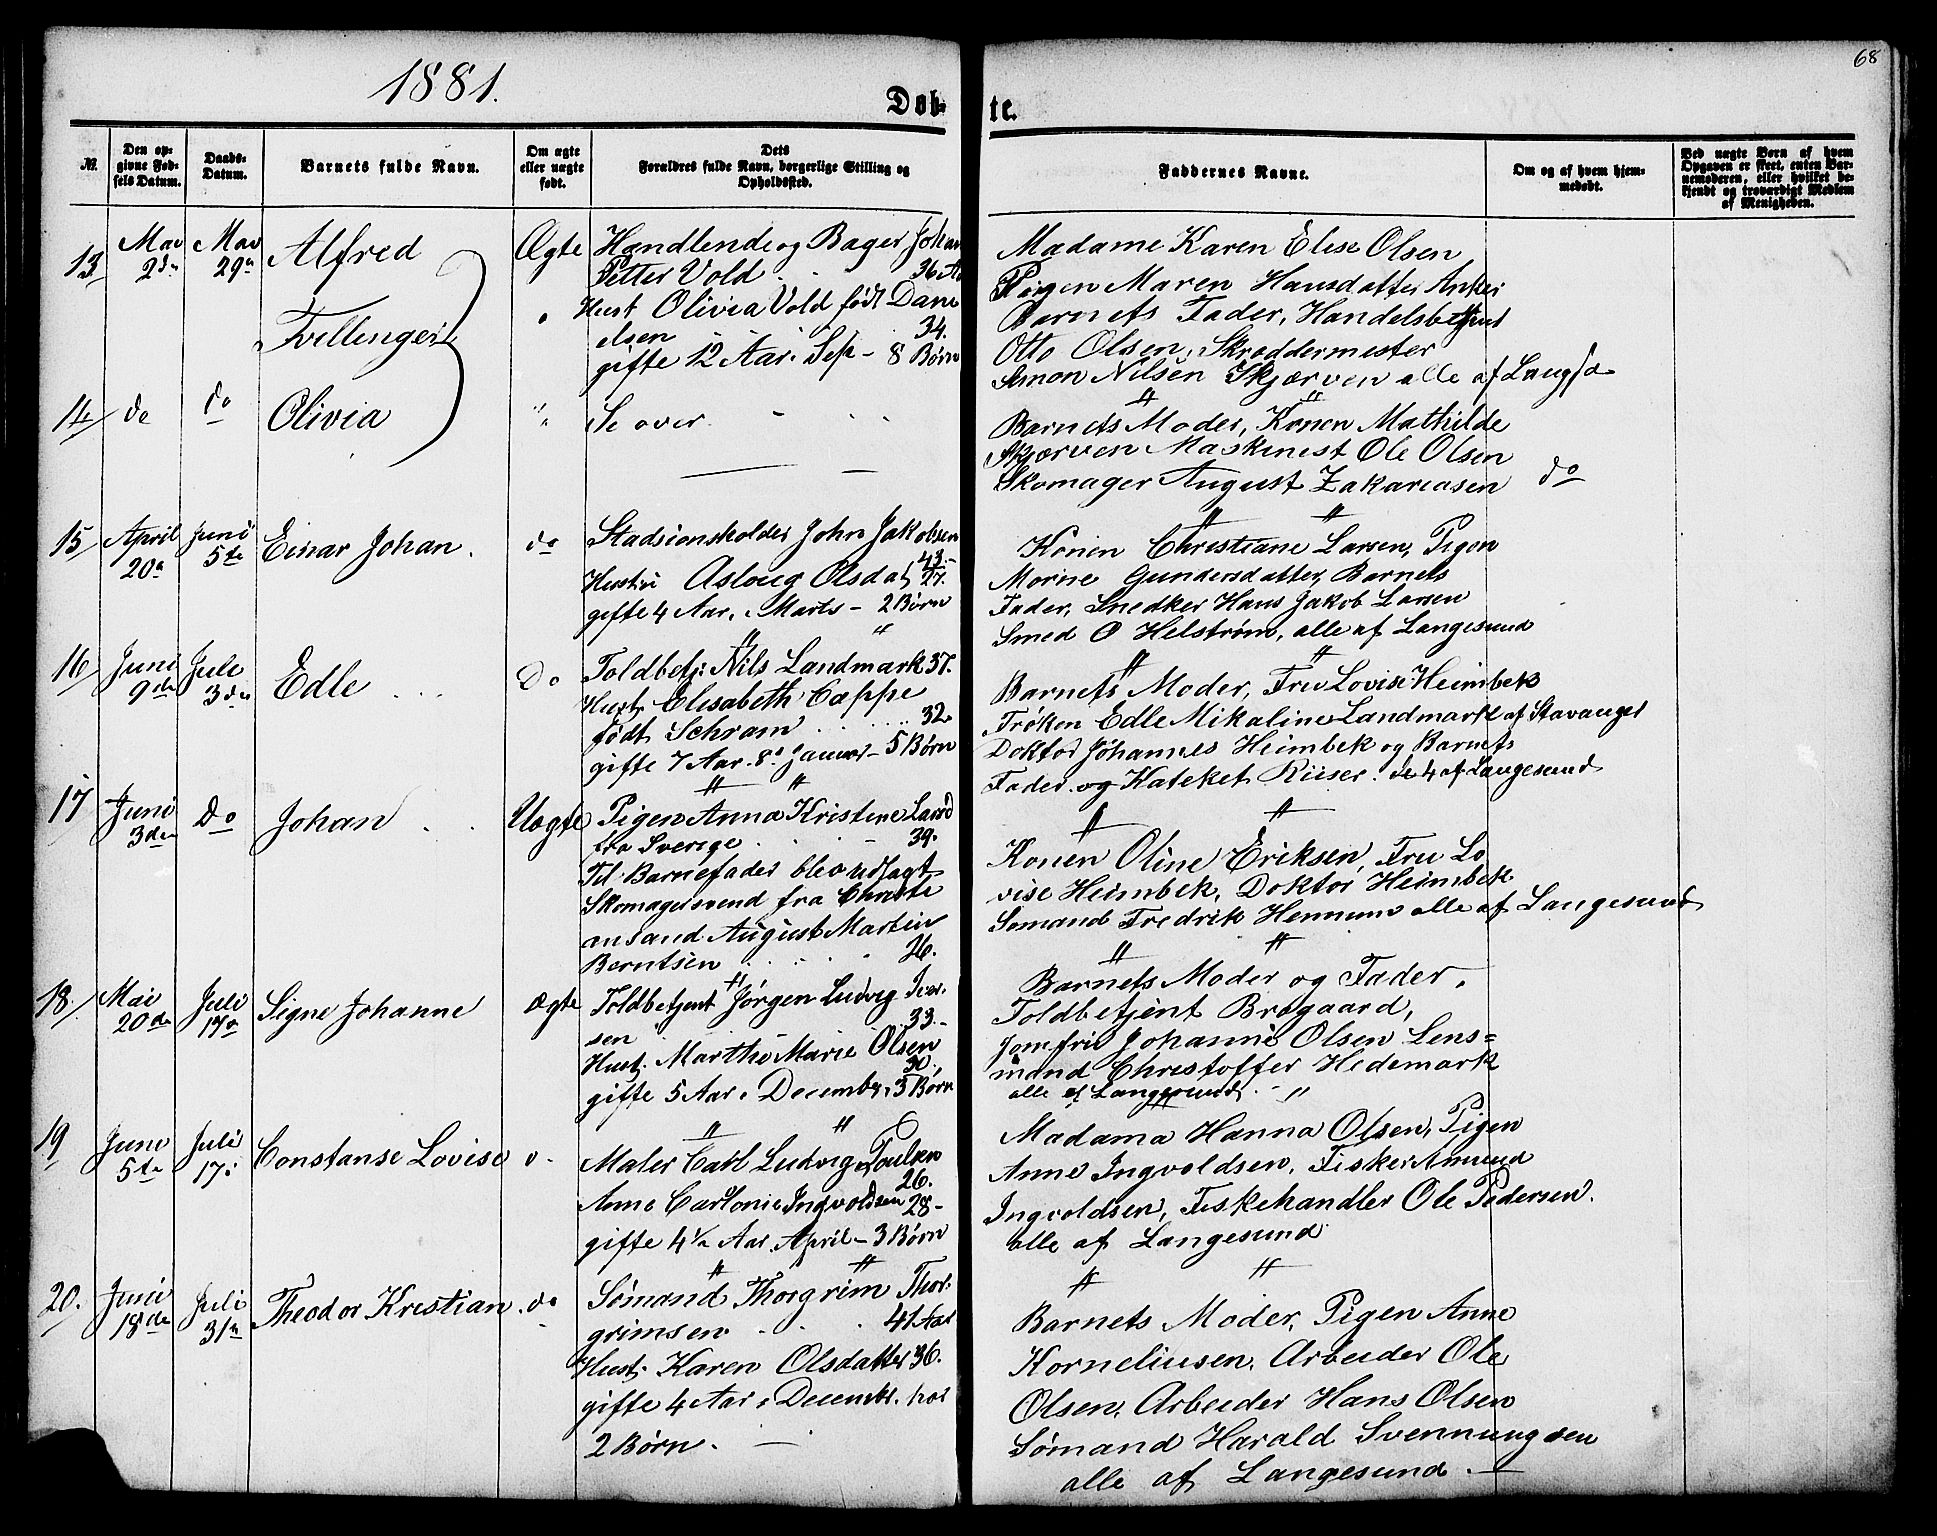 1881.
68
Døb-
te.
№.
Den op-
givne Fød-
sels Datum.
Daabs-
Datum.
Barnets fulde Navn.
Om ægte
eller uægte
født.
Dets
Forældres fulde Navn, borgerlige Stilling og
Opholdssted.
Faddernes Navne.
Om og af hvem hjem-
medøbt.
Ved uægte Børn af hvem
Opgaven er skeet, enten Bar-
nemoderen, eller hvilket be-
kjendt og troværdigt Medlem
af Menigheden.
13
Mai
Mai
29
Alfred
Tvillinger
Ægte
Handlende og Bager Johan
Petter Vold 36 Aar
Hust Olivia Vold født Dani
elsen 34.
gifte 12 Aar i Sep - 8 Børn
Madame Karen Elise Olsen
Pigen Maren Hansdatter Anker
Barnets Fader, Handelsbetjent
Otto Olsen, Skræddermester
Simon Nilsen Skjærven alle af Langes
14
do
do
Olivia
"
Se over
" "
Barnets Moder, Konen Mathilde
Skjærven Maskinist Ole Olsen
Skomager August Zakariasen do
15
April
20
Juni
5te
Einar Johan.
do
Stadsionsholder John Jakobsen
43.
Hustru Asloug Olsdat 27.
gifte 4 Aar, i Marts - 2 Børn
" "
Konen Christiane Larsen, Pigen
Morine Gundersdatter, Barnets
Fader, Snedker Hans Jakob Larsen
Smed O Helstrøm, alle af Langesund
16
Juni
9de
Juli
3die
Edle
Do
Toldbetj. Nils Landmark 37.
Hust. Elisabeth Cappe
født Schram 32
gifte 7 Aar 8 Januar - 5 Børn
" "
Barnets Moder, Fru Lovise Heimbek
Frøken Edle Mikaline Landmark af Stavanger
Doktor Johannes Heimbek og Barnets
Fader og Kateket Riiser. de 4 af Langesund
17
Juni
3die
do
Johan
Uægte
Pigen Anna Kristine
fra Sverige 34.
Til Barnefader blev udlagt
Skomagersvend fra Christi
ansand August Martin
Berntsen 26.
" "
Konen Oline Eriksen, Fru Lo
vise Heimbek, Doktor Heimbek
Sømand Fredrik Hennum alle af Langesund
18.
Mai
20de
Juli
17
Signe Johanne
Ægte
Toldbetjent Jørgen Ludvig Iver-
sen 33.
Hust. Marthe Marie Olsen
30.
gifte 5 Aar i Decembr. 3 Børn
" "
Barnets Moder og Fader,
Toldbetjent Brogaard,
Jomfru Johanne Olsen Lens-
mand Christoffer Hedemark
alle af Langesund
19
Juni
5te
Juli
17
Constanse Lovise
Maler Carl Ludvig Poulsen
26.
Anne Carlonie Ingvoldsen 28
gifte 4½ Aar April - 3 Børn
Madama Hanna Olsen, Pigen
Anne Ingvoldsen, Fisker Amund
Ingvoldsen, Fiskehandler Ole Pedersen.
alle af Langesund
20.
Juni
18de
Juli
31
Theodor Kristian.
do
Sømand Thorgrim Thor-
grimsen 41 Aar
Hust. Karen Olsdatter 36.
gifte 4 Aar i Decembr. har
2 Børn.
" "
Barnets Moder, Pigen Anne
Korneliusen, Arbeider Ole
Olsen, Arbeider Hans Olsen
Sømand Harald Svennungsen
alle af Langesund.